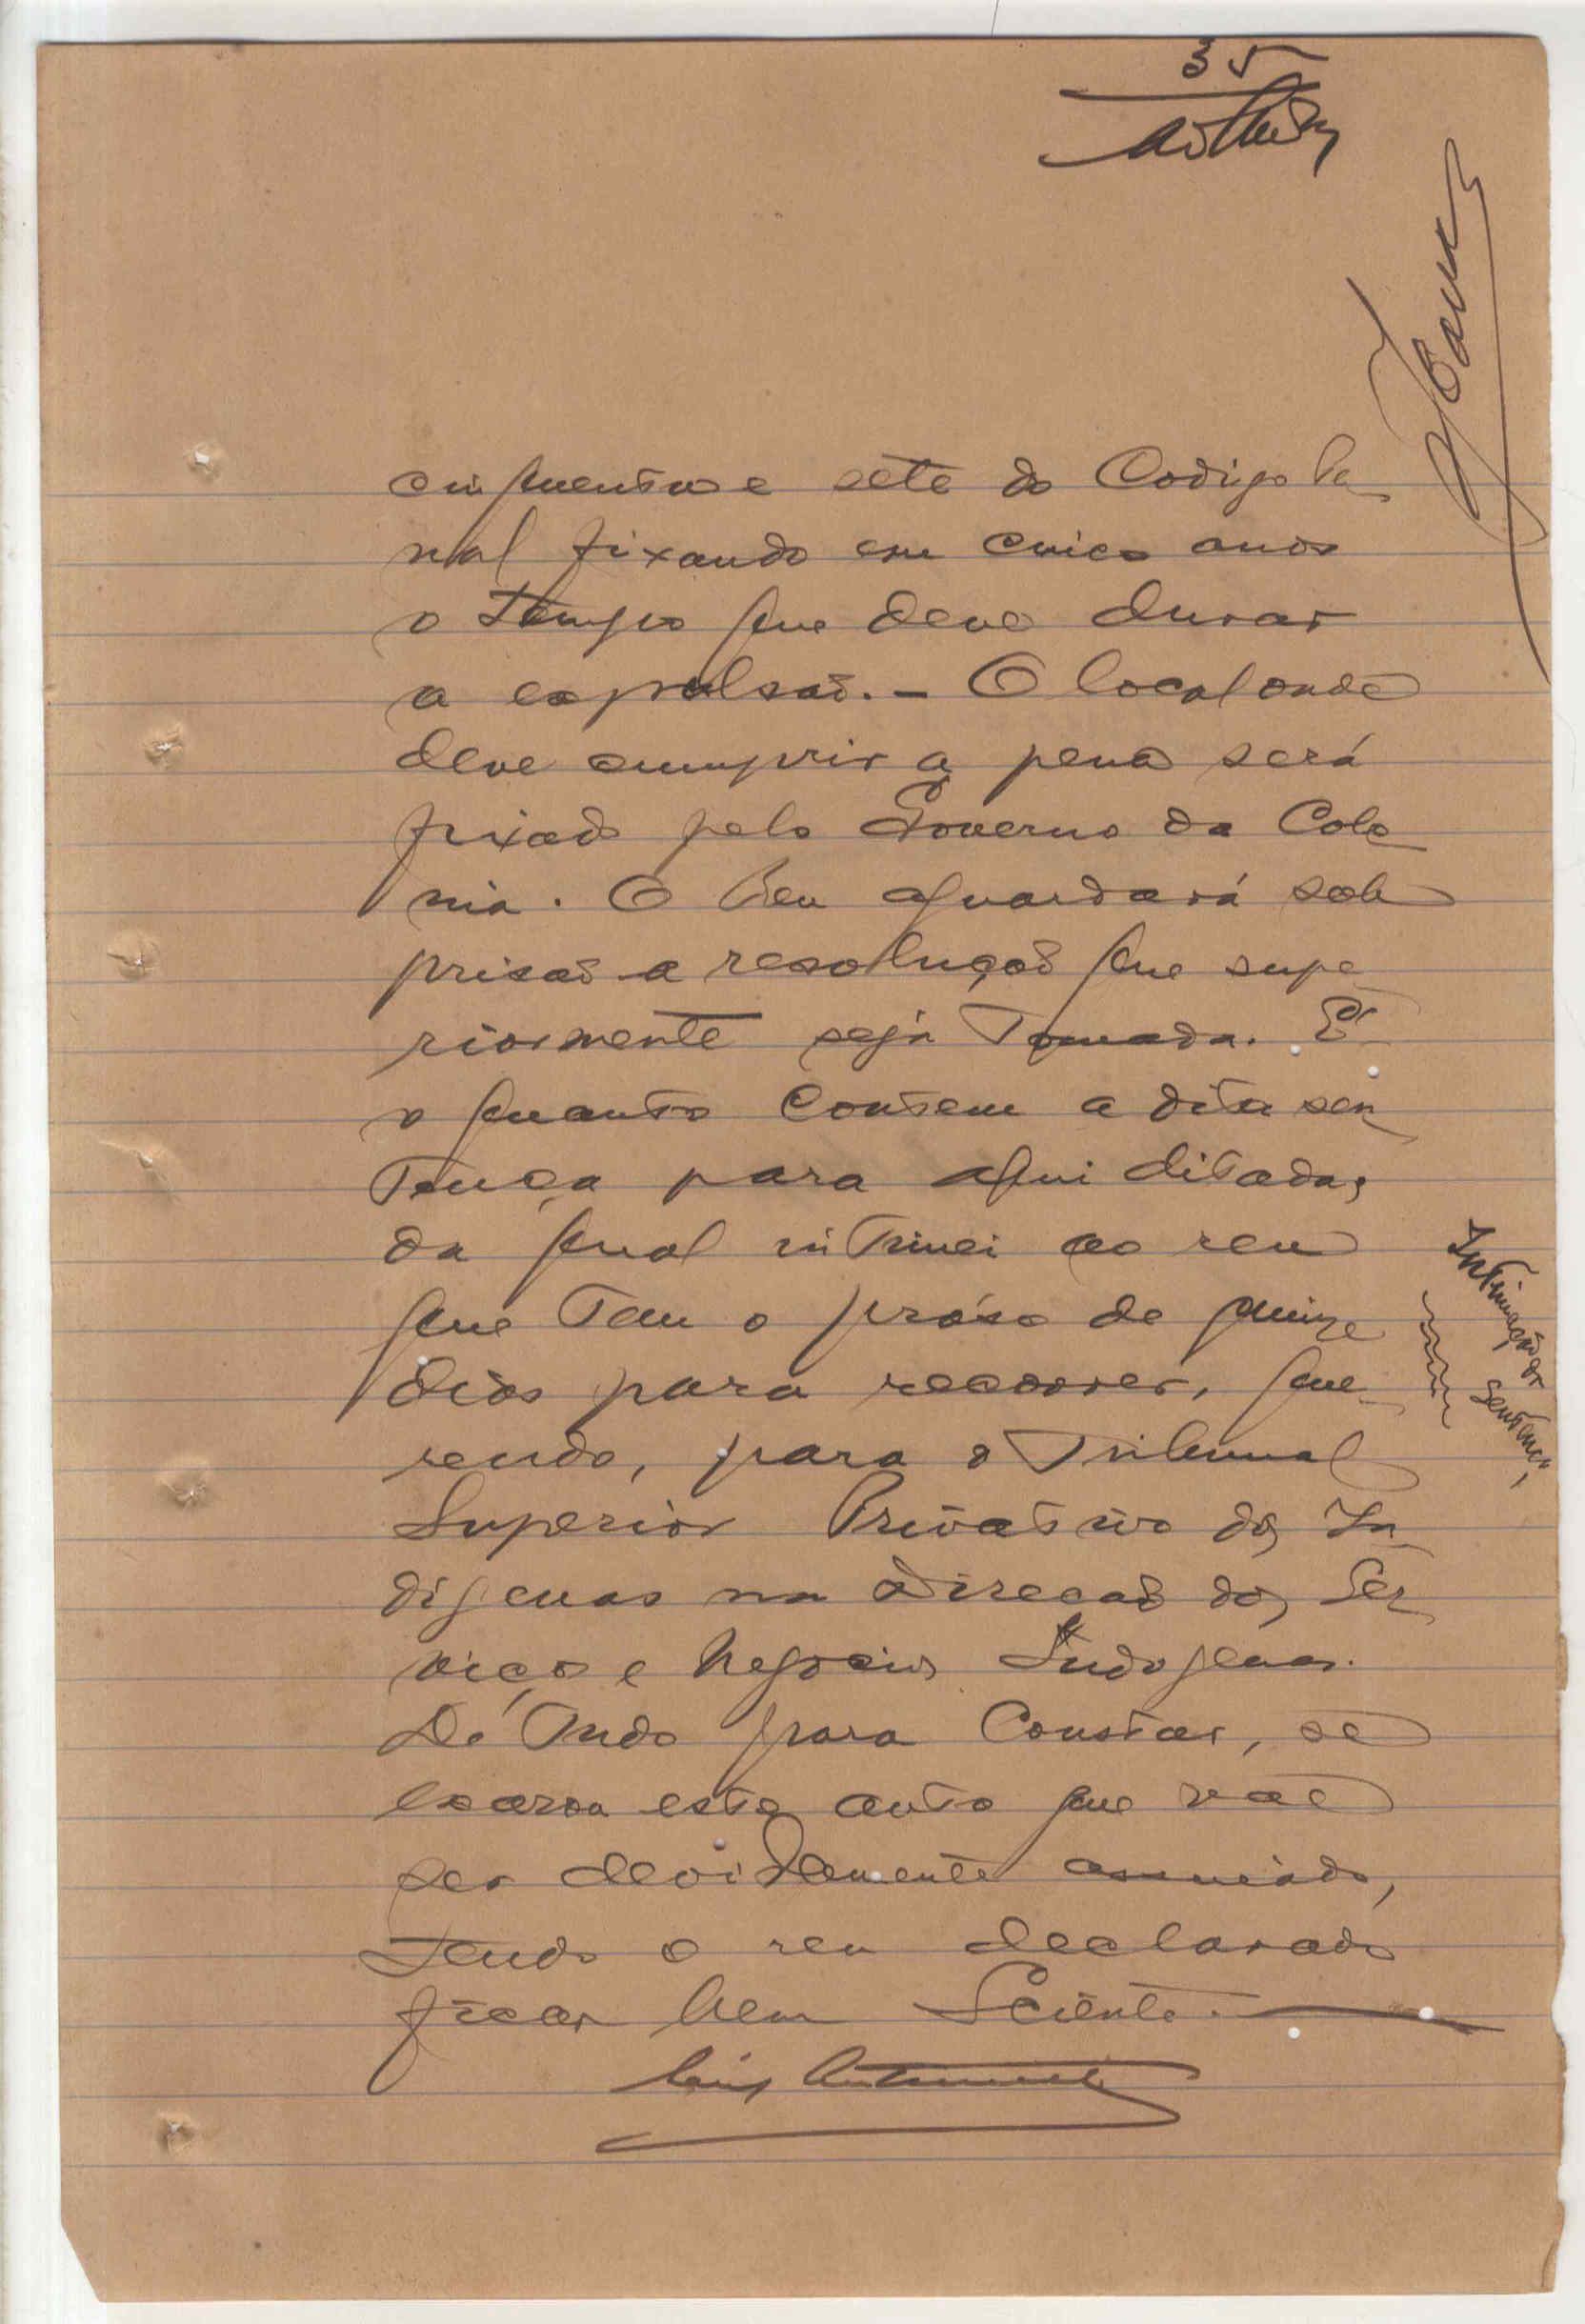 35
cinquenta e sete do Codigo Pe-
nal fixando em cinco anos
o tempo que deve durar
a expulsaõ. - O local onde
deve cumprir a pena será
fixado pelo Governo da Colo
nia. O Reu aguardará sob
prisaõ a resoluçaõ que supe-
riormente seja tomada. E'
o quanto contem a dita sen-
tença para aqui ditada,
da qual intimei ao reu
que tem o práso de quinze
dias para recorrer, que-
rendo, para o Tribunal
Superior Privativo dos In-
digenas na Direcaõ dos Ser-
viços e Negocios Indigenas.
De tudo para constar, se
exarou este auto que vae
ser devidamente assinado,
tendo o reu declarado
ficar bem sciente.
Intimação da
sentença